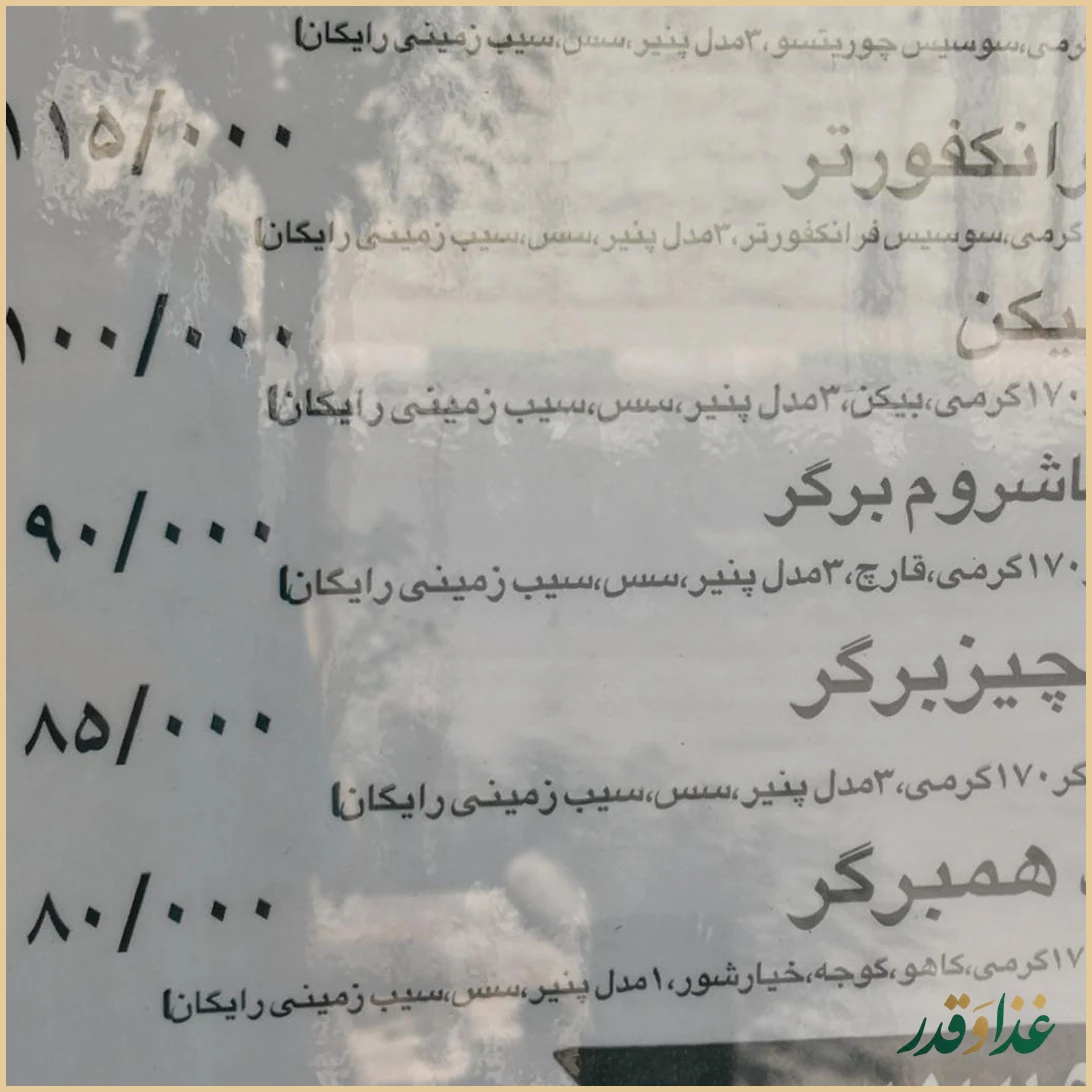 سوسیس چوریتسو،۳مدل پنیر،سس،سیب زمینی رایگان)
۱۱۵/۰۰۰
گرمی،سوسیس فرانکفورتر،۳مدل پنیر،سس،سیب زمینی رایگان)
۱۰۰/۰۰۰
۱۷۰گرمی،بیکن،۳مدل پنیر،سس،سیب زمینی رایگان)
ماشروم برگر ۹۰/۰۰۰
۱۷۰گرمی،قارچ،۳مدل پنیر،سس،سیب زمینی رایگان)
چیزبرگر ۸۵/۰۰۰
۱۷۰گرمی،۳مدل پنیر،سس،سیب زمینی رایگان)
همبرگر ۸۰/۰۰۰
گرمی،کاهو،گوجه،خیارشور،۱مدل پنیر،سس،سیب زمینی رایگان)
غذا و قدر